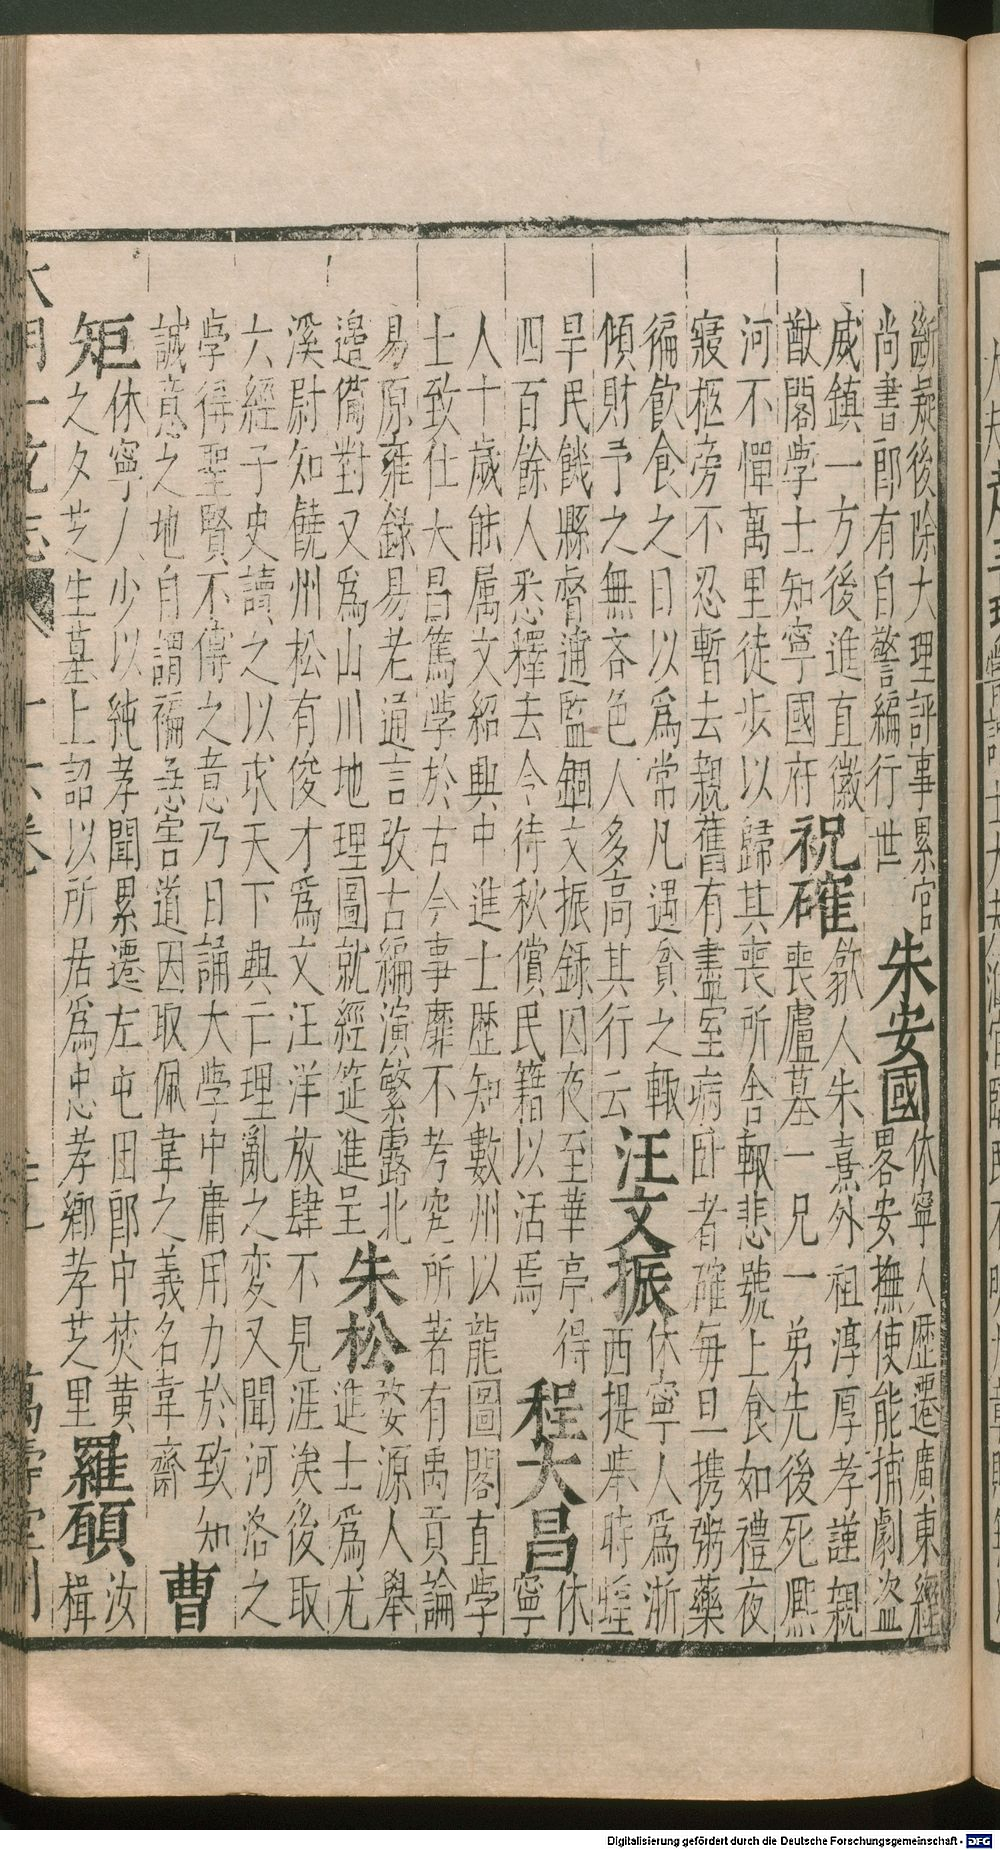 斷疑後除大理評事累官
尚書郎有自警編行世
朱安國
休寧人歷遷廣東經
畧安撫使能捕劇盜
威鎮一方後進直徽
猷閣學士知寧國府
祝確
歙人朱熹外祖淳厚孝謹親
喪廬墓一兄一弟先後死熈
河不憚萬里徒步以歸其喪所舍輙悲號上食如禮夜
寢柩旁不忍暫去親舊有盡室病卧者確每旦携粥藥
徧飲食之日以爲常凡遇貧之輙
傾財予之無吝色人多高其行云
汪文振
休寧人爲浙
西提舉時蝗
旱民饑縣督逋監錮文振錄囚夜至華亭得
四百餘人悉釋去令待秋償民籍以活焉
程大昌
休
寧
人十歲能属文紹興中進士歷知數州以龍圖閣直學
士致仕大昌篤學於古今事靡不考究所著有禹貢論
易原雍錄易老通言攷古編演繁露北
邉備對又爲山川地理圖就經筵進呈
朱松
婺源人舉
進士爲尤
溪尉知饒州松有俊才爲文汪洋放肆不見涯涘後取
六經子史讀之以求天下興亡理亂之変又聞河洛之
學得聖賢不傳之意乃日誦大學中庸用力於致知
誠意之地自謂褊急害道因取佩韋之義名韋齋
曹
矩
休寧人少以純孝聞累遷左屯田郎中焚黃
之夕芝生墓上詔以所居爲忠孝鄉孝芝里
羅頎
汝
楫
大明一統志 十六卷 萬壽堂刊
Digitalisierung gefördert durch die Deutsche Forschungsgemeinschaft - DFG